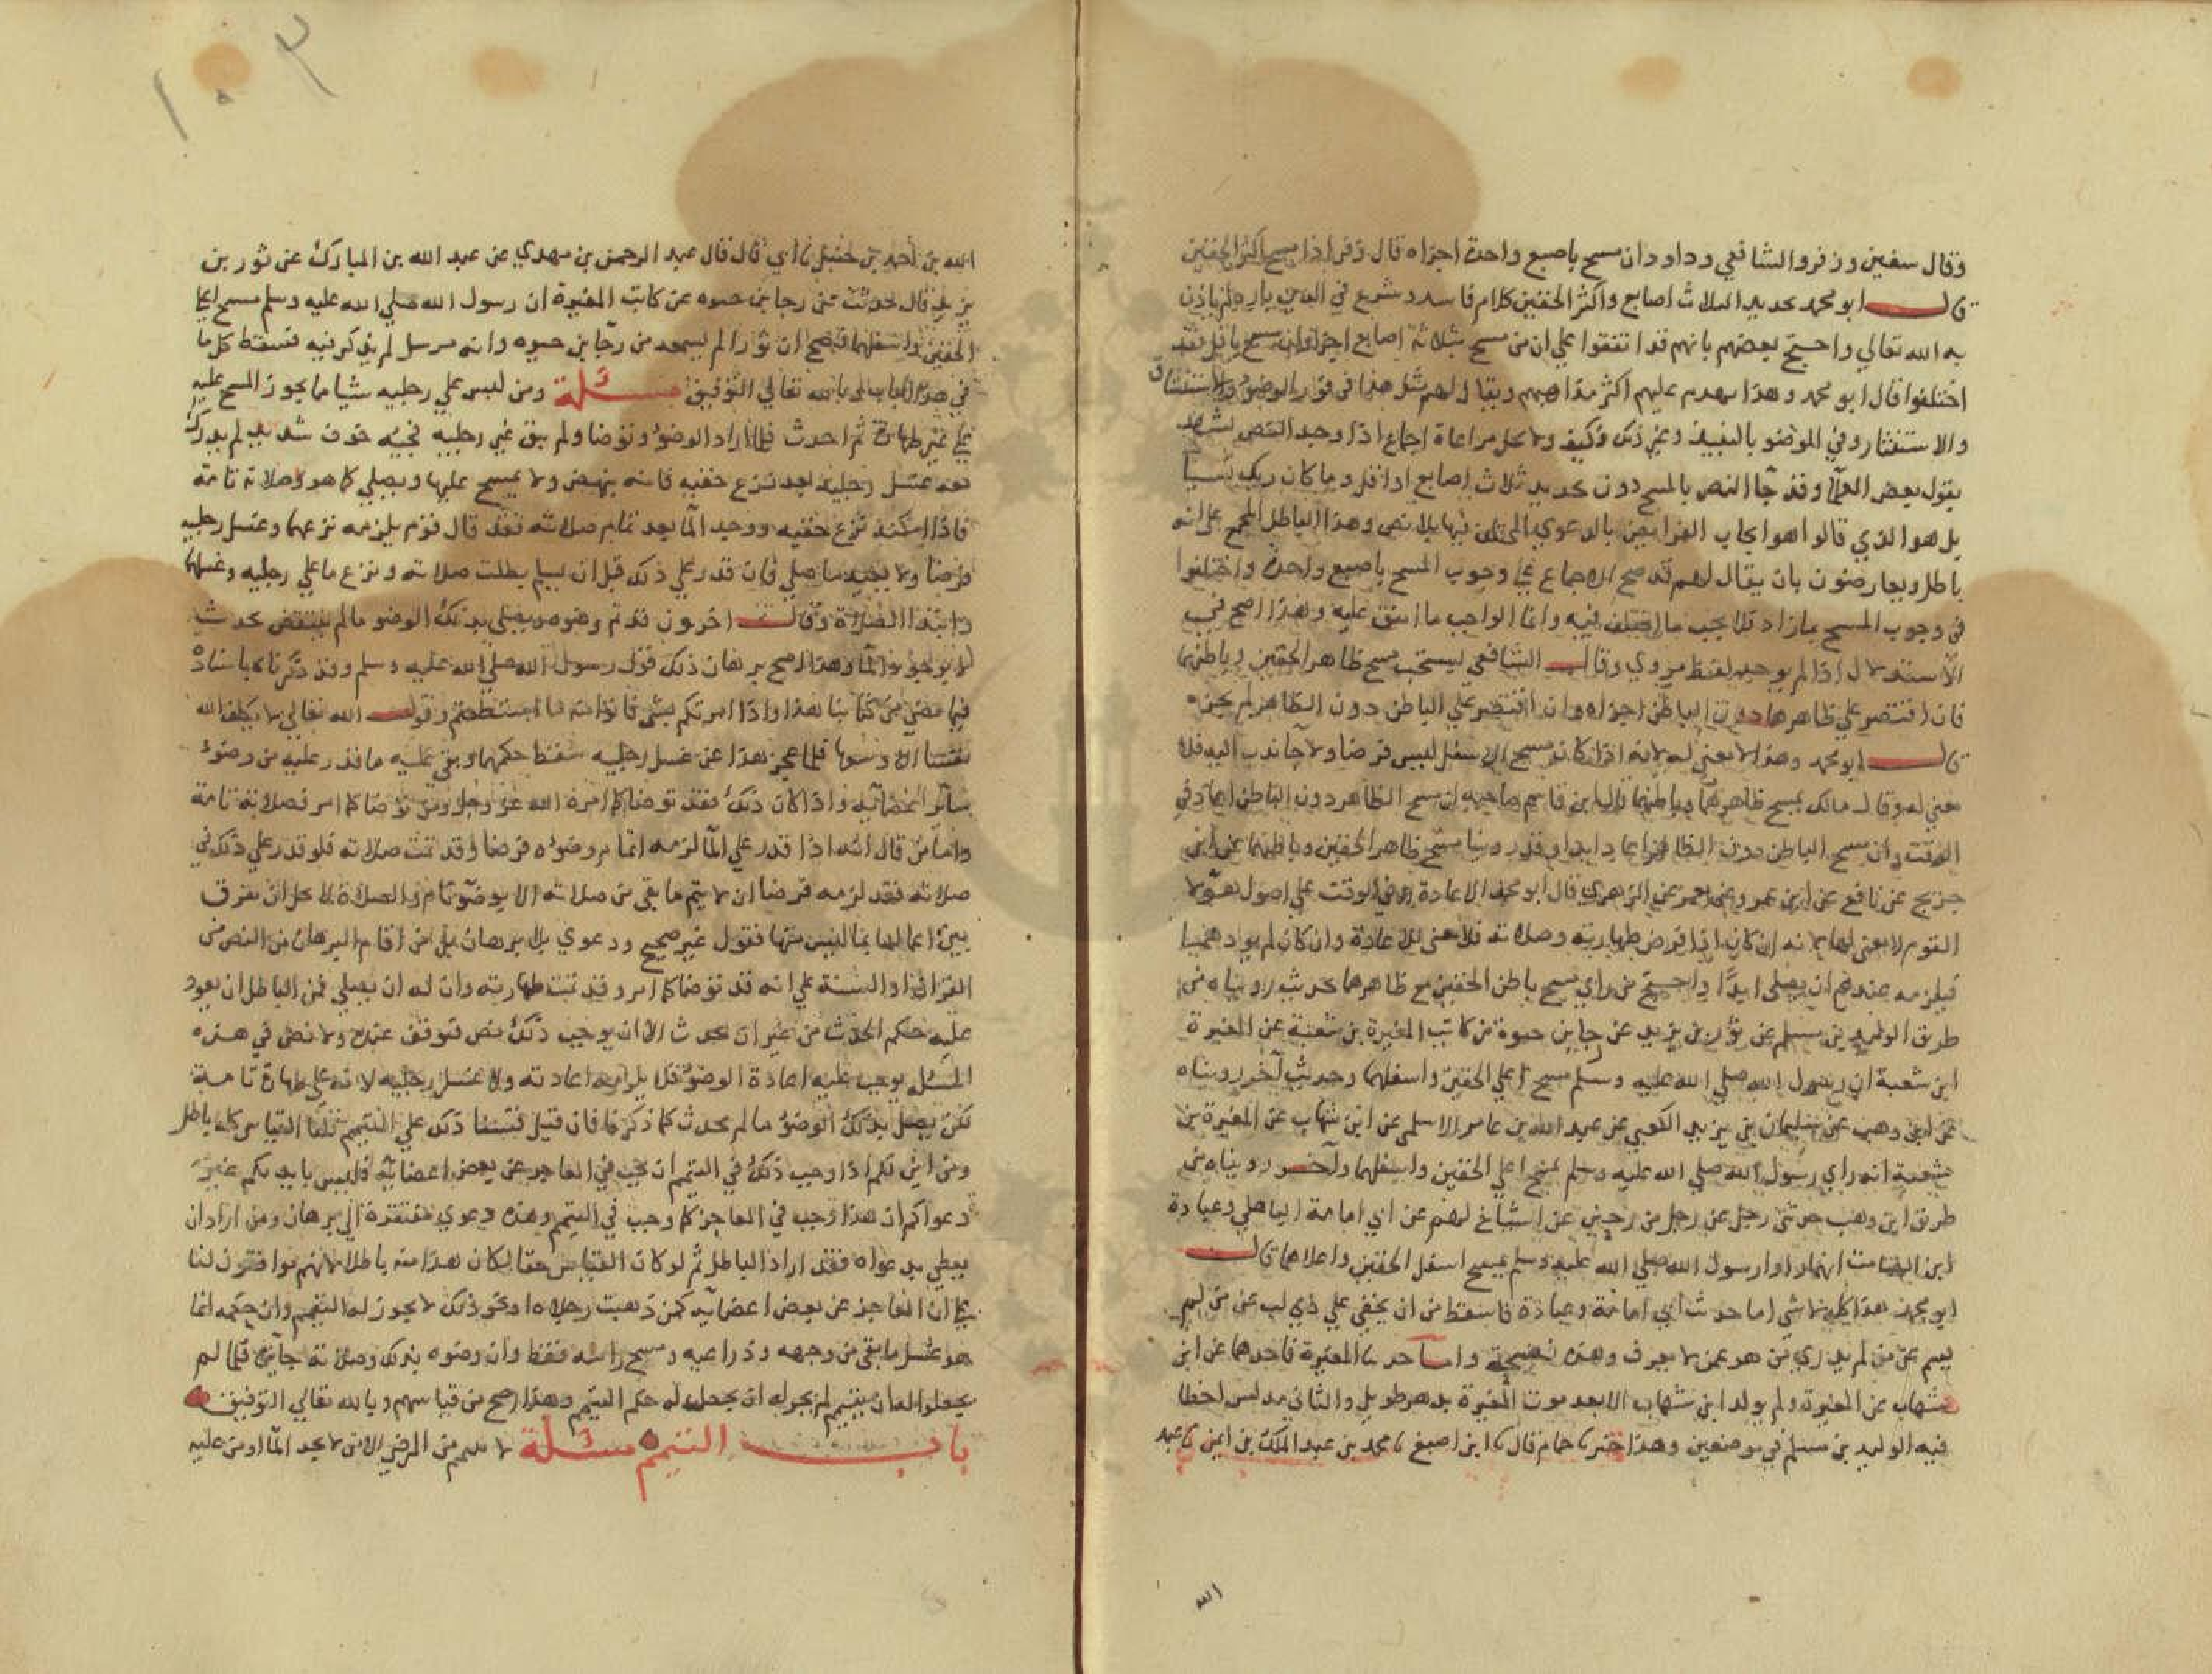 وقال سفين وزفر والشافعي وداود ان مسح باصبع واحدة اجزاه قال زفر اذا مسح اكثر الخفين
قال ابو محمد تحديد الثلاث اصابع واكثر الخفين كلام فاسد وشرع في الدين بارد لم ياذن
به الله تعالي واحتج بعضهم بانهم قد اتفقوا علي ان من مسح بثلاثة اصابع اجزاه وان مسح باقل فقد
اختلفوا قال ابو محمد وهذا يهدم عليهم اكثر مذاهبهم ويقال لهم مثل هذا في قدر الوضو والاستنشاق
والاستنثار وفي الوضو بالنبيذ وغير ذلك وكيف ولا يحل مراعاة اجماع اذا وجد النص يشهد
بقول بعض العلما وقد جا النص بالمسح دون تحديد ثلاث اصابع او اقل وما كان ربك نسيا
بل هو الذي قالوا هو ايجاب الفرايض بالدعوي المختلف فيها بلا نص وهذا الباطل المجمع علي انه
باطل ويعارضون بان يقال لهم قد صح الاجماع علي وجوب المسح باصبع واحدة واختلفوا
في وجوب المسح بما زاد فلا يجب ما اختلف فيه وانما الواجب ما اتفق عليه وهذا اصح في
الاستدلال اذا لم يوجد لفظ مروي وقال الشافعي يستحب مسح ظاهر الخفين وباطنهما
فان اقتصر علي ظاهرهما دون الباطن اجزاه وان اقتصر علي الباطن دون الظاهر لم يجزه
قال ابو محمد وهذا لا معني له لانه اذا كان مسح الاسفل ليس فرضا ولا جا ندب اليه فلا
معني له وقال مالك يمسح ظاهرهما وباطنهما قال ابن قاسم صاحبه ان مسح الظاهر دون الباطن اعاد في
الوقت وان مسح الباطن دون الظاهر اعاد ابدا وقد روينا مسح ظاهر الخفين وباطنهما عن ابن
جريج عن نافع عن ابن عمر وعن معمر عن الزهري قال ابو محمد الاعادة في الوقت علي اصول هولا
القوم لا معني لها لانه ان كان ادا فرض طهارته وصلاته فلا معني للاعادة وان كان لم يودهما
فيلزمه عندهم ان يصلي ابدا واحتج من راي مسح باطن الخفين مع ظاهرهما بحديث رويناه من
طريق الوليد بن مسلم عن ثور بن يزيد عن رجا بن حيوة عن كاتب المغيرة بن شعبة عن المغيرة
ابن شعبة ان رسول الله صلي الله عليه وسلم مسح اعلي الخفين واسفلهما وحديث آخر رويناه
عن ابن وهب عن سليمان بن يزيد الكعبي عن عبد الله بن عامر الاسلمي عن ابن شهاب عن المغيرة بن
شعبة انه راي رسول الله صلي الله عليه وسلم يمسح اعلي الخفين واسفلهما وآخر رويناه من
طريق ابن وهب حدثني رجل عن رجل من رعين عن اشياخ لهم عن ابي امامة الباهلي وعبادة
ابن الصامت انهما راوا رسول الله صلي الله عليه وسلم يمسح اسفل الخفين واعلاهما قال
ابو محمد هذا كله لا شي اما حديث ابي امامة وعبادة فاسقط من ان يخفي علي ذي لب عن من لم
يسم عن من لم يدري من هو عمن لا يعرف وهذه فضيحة واما حديثا المغيرة فاحدهما عن ابن
شهاب عن المغيرة ولم يولد ابن شهاب الا بعد موت المغيرة بدهر طويل والثاني مدلس اخطا
فيه الوليد بن مسلم في موضعين وهذا خبر ثنا حمام قال ثنا ابن اصبغ ثنا محمد بن عبد الملك بن ايمن ثنا عبد
الله
١٠٣
الله بن احمد بن حنبل ثنا ابي قال قال عبد الرحمن بن مهدي عن عبد الله بن المبارك عن ثور بن
يزيد قال حدثت عن رجا بن حيوه عن كاتب المغيرة ان رسول الله صلي الله عليه وسلم مسح اعلا
الخفين واسفلهما فصح ان ثورا لم يسمعه من رجا بن حيوه وانه مرسل لم يذكر فيه فسقط كل ما
في هذا الباب وبالله تعالي التوفيق مسئلة ومن لبس علي رجليه شيا مما يجوز المسح عليه
علي غير طهارة ثم احدث فلما اراد الوضو وتوضا ولم يبق غير رجليه فجيه خوف شديد لم يدرك
معه غسل رجليه بعد نزع خفيه فانه ينهض ولا يمسح عليهما ويصلي كما هو وصلاته تامة
فاذا امكنه نزع خفيه ووجد الما بعد تمام صلاته فقد قال قوم يلزمه نزعهما وغسل رجليه
فرضا ولا يعيد ما صلي فان قدر علي ذلك قبل ان يسلم بطلت صلاته ونزع ما علي رجليه وغسلهما
وابتدا الصلاة وقال اخرون قد تم وضوه ويصلي بذلك الوضو ما لم ينتقض بحدث
لا بوجود الما وهذا اصح برهان ذلك قول رسول الله صلي الله عليه وسلم وقد ذكرناه باسناده
فيما مضي من كتابنا هذا واذا امرتكم بشي فاتوا منه ما استطعتم وقول الله تعالي لا يكلف الله
نفسا الا وسعها فلما عجز هذا عن غسل رجليه سقط حكمهما وبقي عليه ما قدر عليه من وضوء
سائر اعضائه واذا كان ذلك فقد توضا كما امره الله عز وجل ومن توضا كما امر فصلاته تامة
واما من قال انه اذا قدر علي الما لزمه اتمام وضوه فرضا وقد تمت صلاته فلو قدر علي ذلك في
صلاته فقد لزمه فرضا ان لا يتم ما بقي من صلاته الا بوضو تام والصلاة لا يحل ان يفرق
بين اعمالها بما ليس منها فقول غير صحيح ودعوي بلا برهان بل من اقام البرهان من النص من
القران او السنة علي انه قد توضا كما امر وقد تمت طهارته وان له ان يصلي فمن الباطل ان يعود
عليه حكم الحدث من غير ان يحدث الا ان يوجب ذلك نص فنوقف عنده ولا نص في هذه
المسئلة يوجب عليه اعادة الوضو فلا يلزمه اعادته ولا غسل رجليه لانه علي طهارة تامة
لكن يصلي بذلك الوضو ما لم يحدث كما ذكرنا فان قيل قسنا ذلك علي التيمم قلنا القياس كله باطل
ومن اين لكم اذا وجب ذلك في التيمم ان يجب في العاجز عن بعض اعضائه فليس بايديكم غير
دعواكم ان هذا وجب في العاجز كما وجب في التيمم وهذه دعوي مفتقرة الي برهان ومن اراد ان
يعطي بدعواه فقد اراد الباطل ثم لو كان القياس حقا لكان هذا منه باطلا لانهم موافقون لنا
علي ان العاجز عن بعض اعضائه كمن ذهبت رجلاه او نحو ذلك لا يجوز له التيمم وان حكمه انما
هو غسل ما بقي من وجهه وذراعيه ومسح راسه فقط وان وضوه بذلك وصلاته جائزة فلما لم
يجعلوا له ان يتيمم لم يجز له ان يجعل له حكم التيمم وهذا اصح من قياسهم وبالله تعالي التوفيق
باب التيمم مسئلة لا يتيمم من المرضي الا من لا يجد الما او من عليه